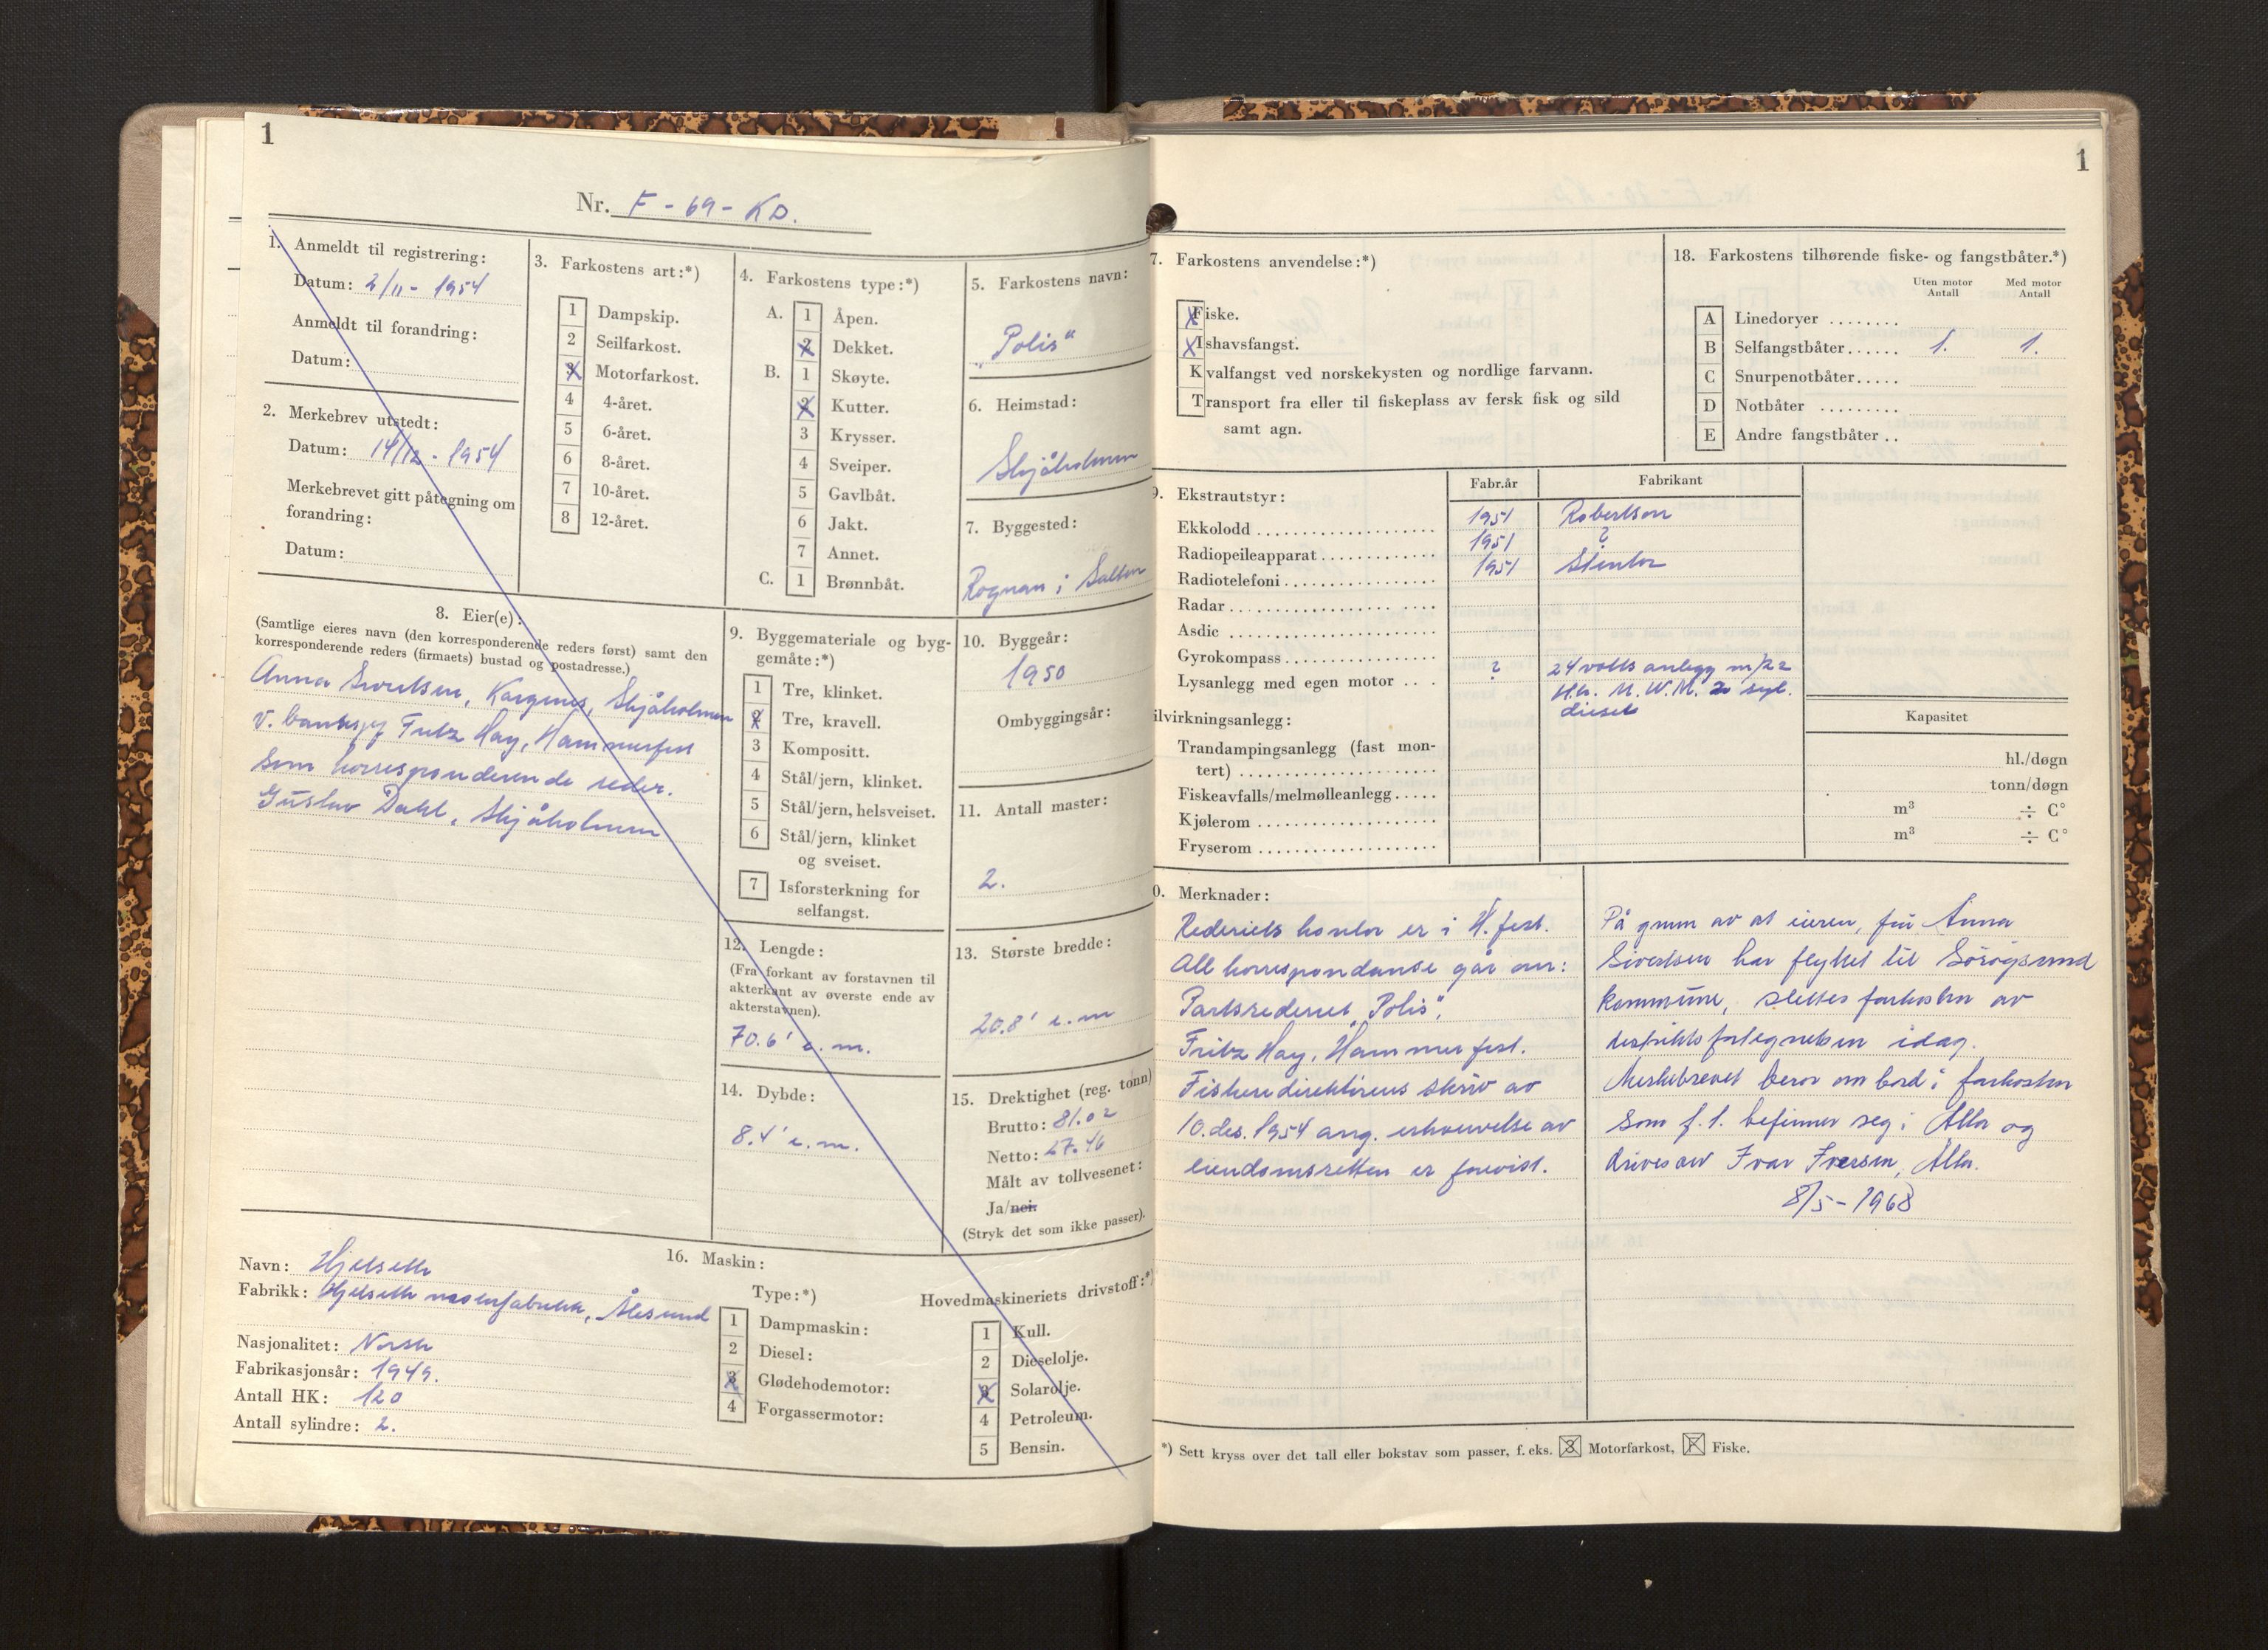 1
Nr. F - 69 - KD.
1. Anmeldt til registrering:
Datum: 2/11 - 1954
Anmeldt til forandring:
Datum:
2. Merkebrev utstedt:
Datum: 14/12 - 1954
Merkebrevet gitt påtegning om
forandring:
Datum:
3. Farkostens art:*)
1 Dampskip.
2 Seilfarkost.
3 Motorfarkost.
4 4-året.
5 6-året.
6 8-året.
7 10-året.
8 12-året.
4. Farkostens type:*)
A. 1 Åpen.
2 Dekket.
B. 1 Skøyte.
2 Kutter.
3 Krysser.
4 Sveiper.
5 Gavlbåt.
6 Jakt.
7 Annet.
C. 1 Brønnbåt.
5. Farkostens navn:
"Polis"
6. Heimstad:
Skjåholmen
7. Byggested:
Rognan i Salten
8. Eier(e):
(Samtlige eieres navn (den korresponderende reders først) samt den
korresponderende reders (firmaets) bustad og postadresse.)
Anna Sivertsen, Kargenes, Skjåholmen
v. Fritz Hay, Hammerfest
som korresponderende reder.
Gustav Dahl, Skjåholmen
9. Byggemateriale og byg-
gemåte:*)
1 Tre, klinket.
2 Tre, kravell.
3 Kompositt.
4 Stål/jern, klinket.
5 Stål/jern, helsveiset.
6 Stål/jern, klinket
og sveiset.
7 Isforsterkning for
selfangst.
10. Byggeår:
1950
Ombyggingsår:
11. Antall master:
2.
12. Lengde:
(Fra forkant av forstavnen til
akterkant av øverste ende av
akterstavnen).
70.6' e.m.
13. Største bredde:
20.8' e.m
14. Dybde:
8.4' e.m.
15. Drektighet (reg. tonn)
Brutto: 81.02
Netto: 27.46
Målt av tollvesenet:
Ja/nei.
(Stryk det som ikke passer).
16. Maskin:
Navn: Hjelseth
Fabrikk: Hjelseth motorfabrikk, Ålesund
Nasjonalitet: Norsk
Fabrikasjonsår: 1949.
Antall HK: 120
Antall sylindre: 2.
Type:*)
1 Dampmaskin:
2 Diesel:
3 Glødehodemotor:
4 Forgassermotor:
Hovedmaskineriets drivstoff:*)
1 Kull.
2 Dieselolje.
3 Solarolje.
4 Petroleum.
5 Bensin.
1
7. Farkostens anvendelse:*)
Fiske.
Ishavsfangst.
Kvalfangst ved norskekysten og nordlige farvann.
Transport fra eller til fiskeplass av fersk fisk og sild
samt agn.
18. Farkostens tilhørende fiske- og fangstbåter.*)
Uten motor Antall
Med motor Antall
A Linedoryer ........
B Selfangstbåter...... 1. 1.
C Snurpenotbåter.....
D Notbåter .........
E Andre fangstbåter ..
9. Ekstrautstyr:
Fabr.år
Fabrikant
Ekkolodd 1951 Robertson
Radiopeileapparat 1951 ?
Radiotelefoni 1951 Stentor
Radar
Asdic
Gyrokompass
Lysanlegg med egen motor ... ? 24 volts anlegg m/22
H.k. M.W.M. 20 syl.
diesel
ilvirkningsanlegg:
Kapasitet
Trandampingsanlegg (fast mon-
tert) hl./døgn
Fiskeavfalls/melmølleanlegg..... tonn/døgn
Kjølerom m³ ÷ C°
Fryserom m³ ÷ C°
0. Merknader:
Rederiets kontor er i H.fest.
All korrespondanse går om:
Partsrederiet "Polis",
Fritz Hay, Hammerfest.
Fiskeridirektørens skriv av
10.des. 1954 ang. erhvervelse av
eiendomsretten er forevist.
På grunn av at eieren, fru Anna
Sivertsen har flyttet til Sørøysund
kommune, slettes farkosten av
distriktsfortegnelsen idag.
Merkebrevet beror ombord i farkosten
som f.t. befinner seg i Alta og
drives av Ivar Iversen, Alta.
8/5 - 1968
*) Sett kryss over det tall eller bokstav som passer, f. eks. 3 Motorfarkost, F Fiske.